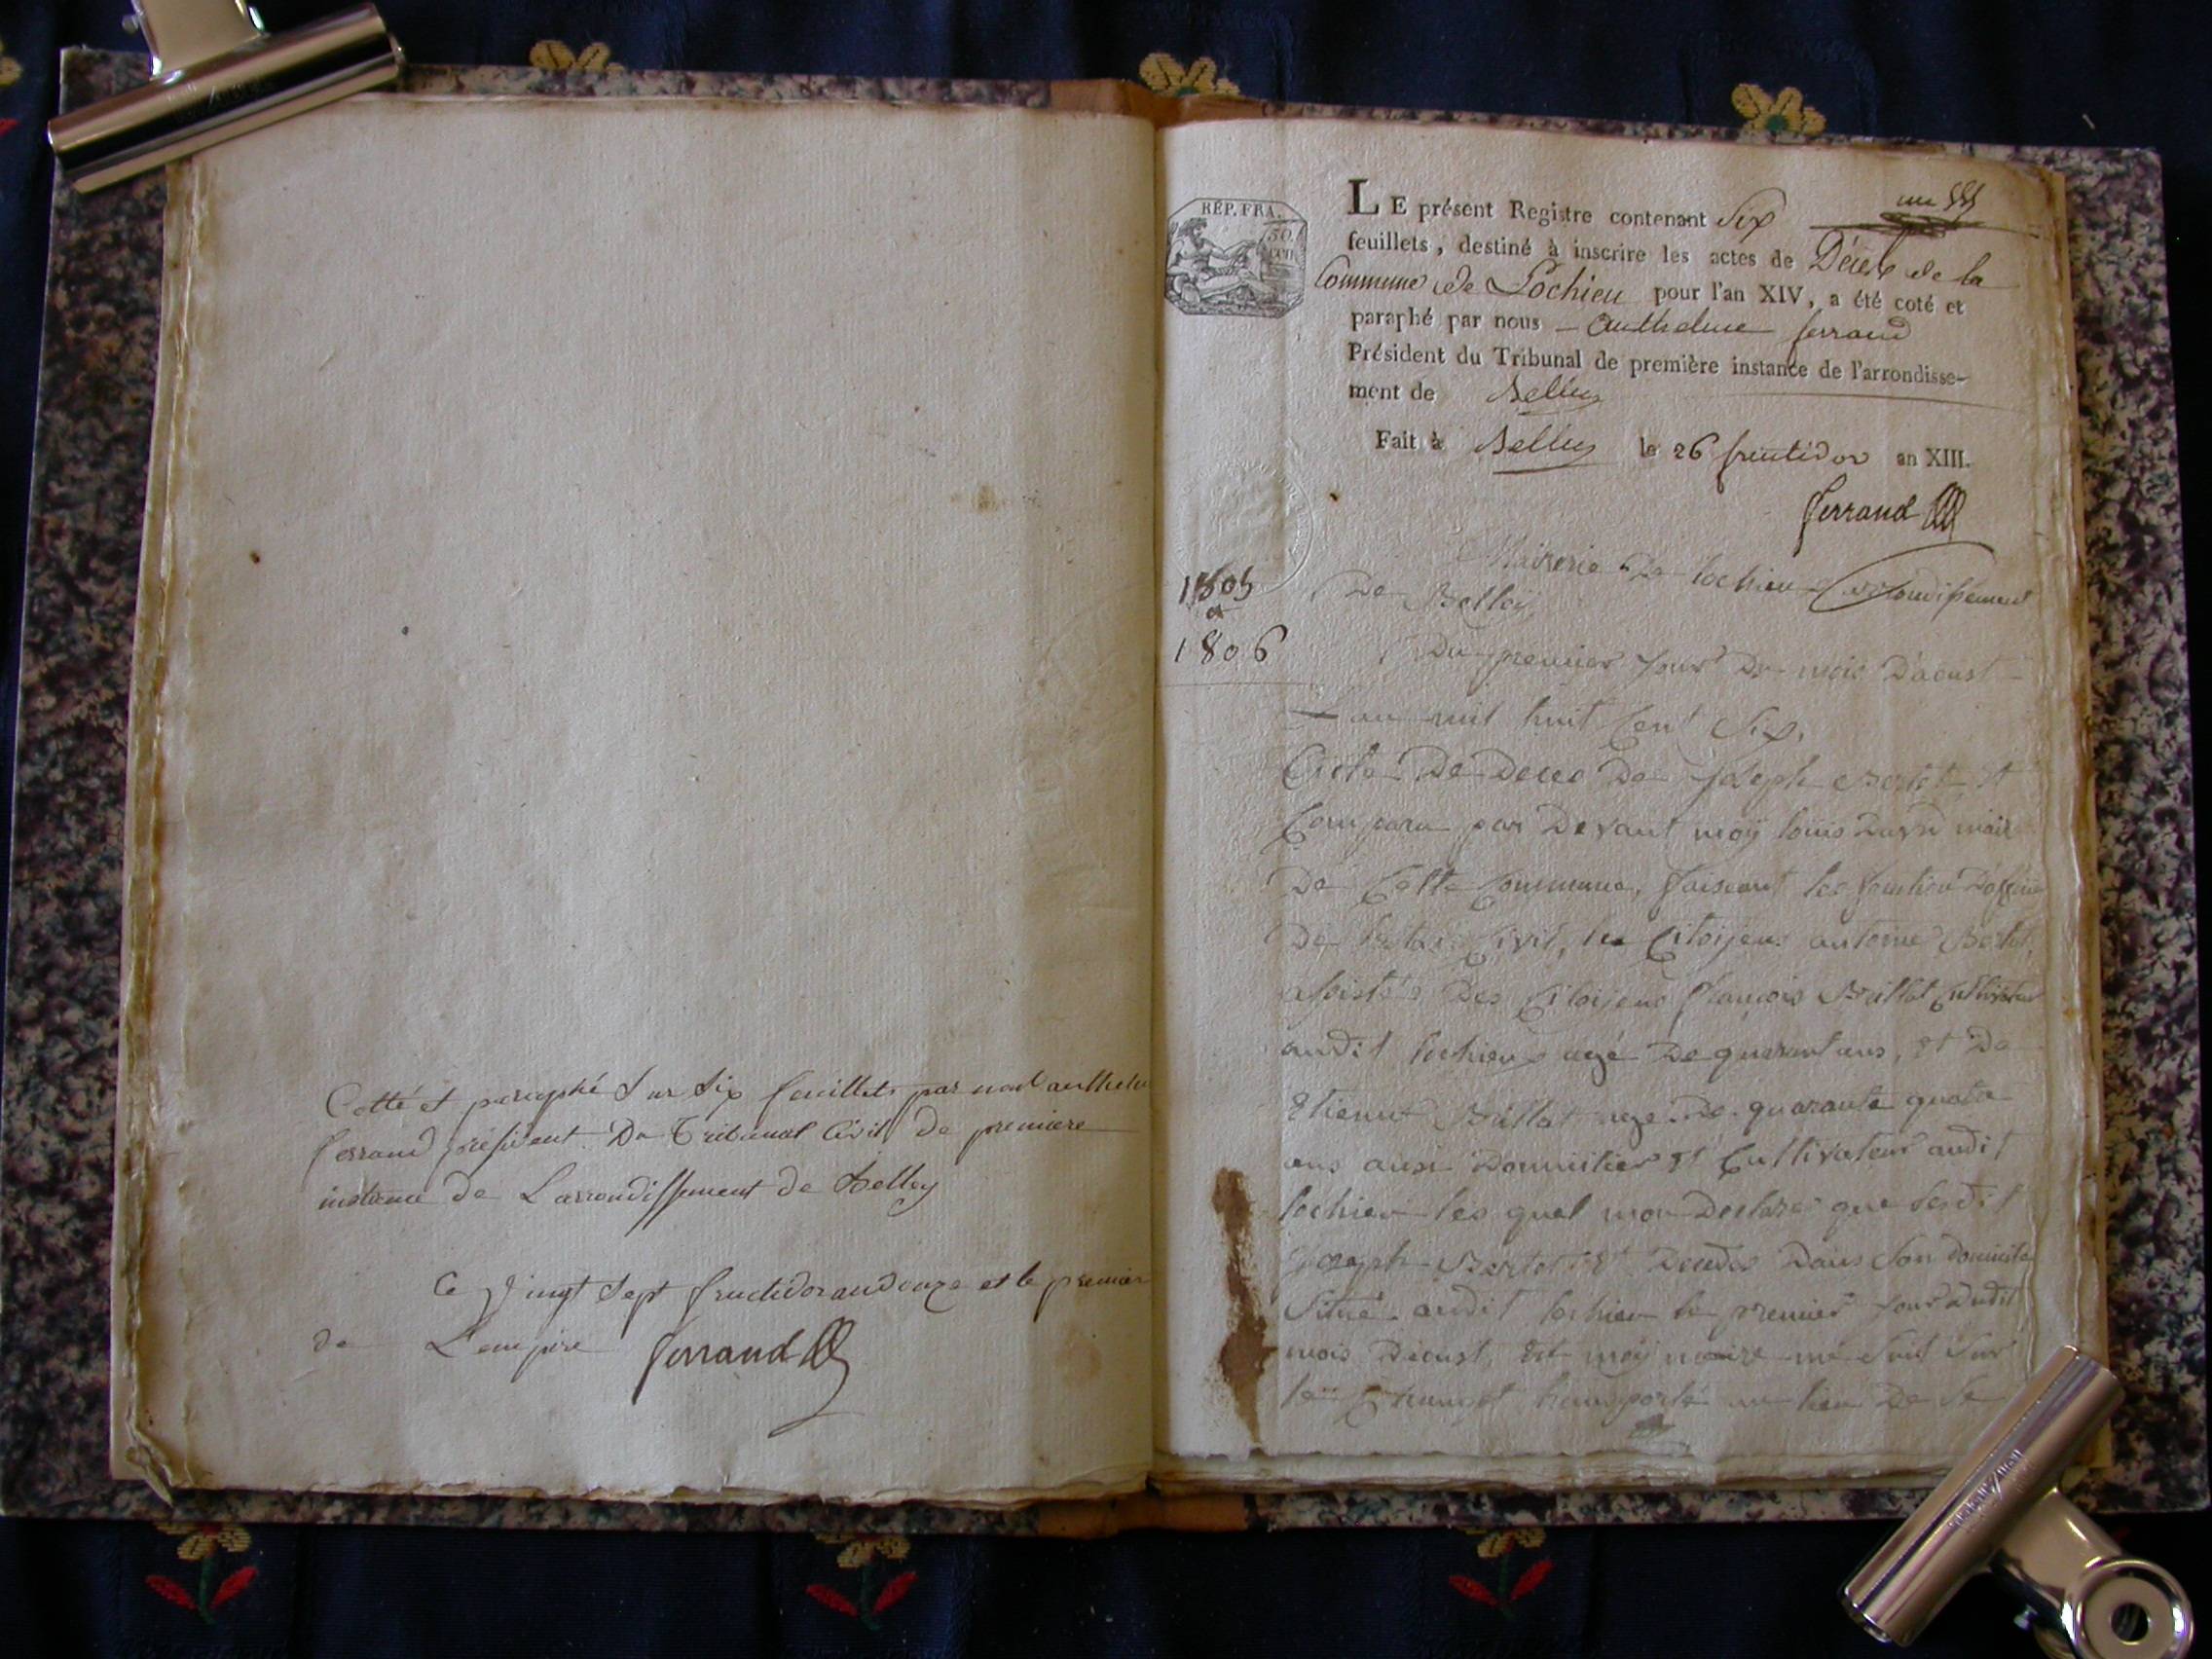 Cotté et paraphé Sur Six feuillets par nous anthelme
ferrand président Du Tribunal Civil de premiere
instance de L'arrondissement de Belley
Ce Vingt Sept fructidor an douze et le premier
de L'empire ferrand
REP. FRA.
50
cen
un
LE présent Registre contenant Six
feuillets, destiné à inscrire les actes de Décès de la
Commune de Lochieu pour l'an XIV, a été coté et
paraphé par nous anthelme ferrand
Président du Tribunal de première instance de l'arrondisse-
ment de Belley
Fait à Belley le 26 fructidor an XIII.
ferrand
Mairerie De lochieu arrondissement
De Belley
1805
a
1806
Du premier jour Du mois D'aoust
L'an mil huit Cent Six,
Acte De Deces De Joseph Bertet Et
Comparu par Devant moÿ loüis David maire
De Cette Commune, faisant les fonction D'officier
De l'etat Civil, les Citoijens antoine Bertet,
assistés Des Citoijens françois Billat Cultivateur
audit lochieu agé De quarant ans, Et De
Etienne Billat age De quarante quatre
ans aussi Domicilier Et Cultivateur audit
lochieu les quel mon Declaré que ledit
Joseph Bertet Et Decedes Dans Son Domicile
Situé audit lochieu le premier jour Dudit
mois D'aoust, Et moÿ maire me Suis Sur
le Champt transporté au lieu De Se